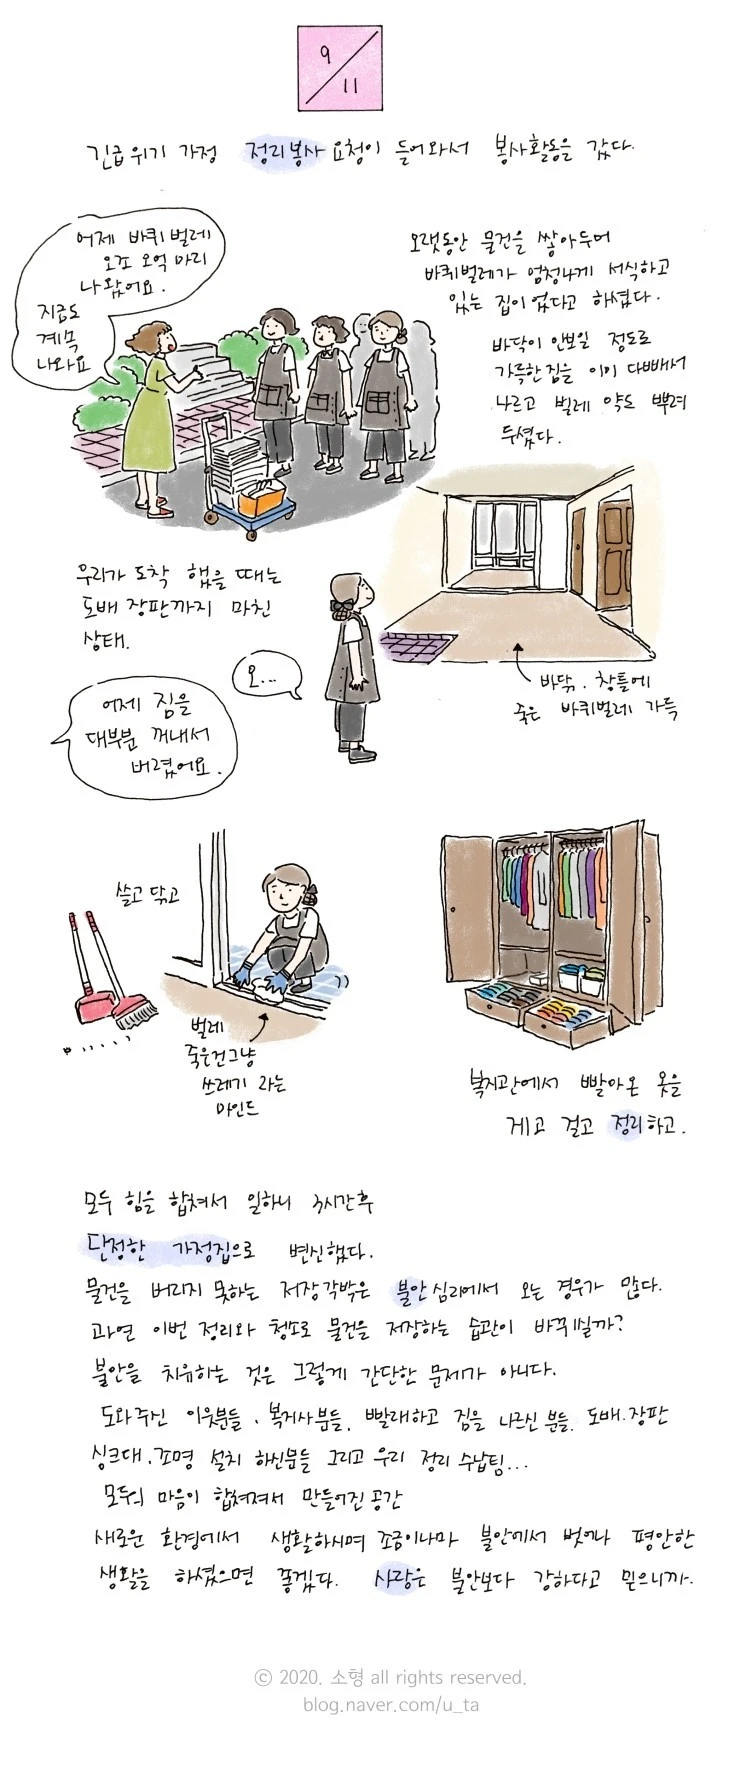 9/11
긴급위기 가정 정리봉사 요청이 들어와서 봉사활동을 갔다.
어제 바퀴벌레
오조 오억 마리
나왔어요.
지금도
계속
나와요
오랫동안 물건을 쌓아두며
바퀴벌레가 엄청나게 서식하고
있는 집이었다고 하셨다.
바닥이 안보일 정도로
가득한 짐을 이미 다빼서
나르고 벌레 약도 뿌려
두셨다.
우리가 도착 했을 때는
도배 장판까지 마친
상태.
오...
어제 짐을
대부분 꺼내서
버렸어요.
바닦. 창틀에
죽은 바퀴벌레 가득
쓸고 닦고
벌레
죽은건그냥
쓰레기 라는
마인드
복지관에서 빨아온 옷을
게고 걸고 정리하고.
모두 힘을 합쳐서 일하니 3시간후
단정한 가정집으로 변신했다.
물건을 버리지 못하는 저장강박은 불안심리에서 오는 경우가 많다.
과연 이번 정리와 청소로 물건을 저장하는 습관이 바뀌실까?
불안을 치유하는 것은 그렇게 간단한 문제가 아니다.
도와주신 이웃분들. 복지사분들. 빨래하고 짐을 나르신 분들. 도배.장판
싱크대.조명 설치 하신분들 그리고 우리 정리 수납팀...
모두의 마음이 합쳐져서 만들어진 공간
새로운 환경에서 생활하시며 조금이나마 불안에서 벗어나 평안한
생활을 하셨으면 좋겠다. 사랑은 불안보다 강하다고 믿으니까.
© 2020. 소형 all rights reserved.
blog.naver.com/u_ta